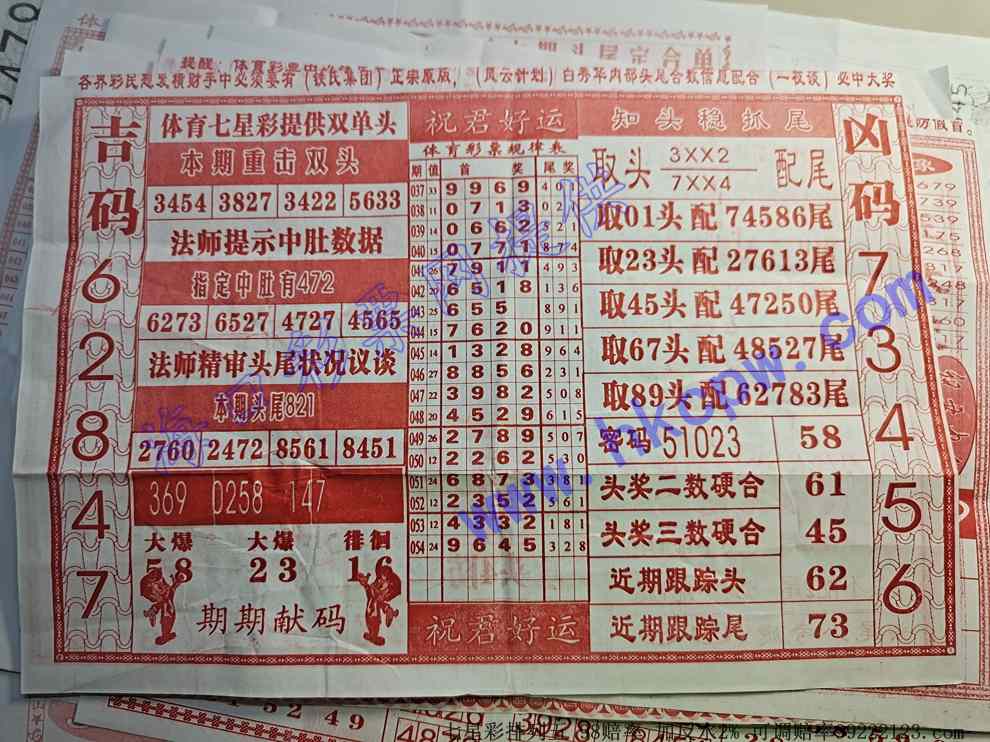 各界彩民想发横财手中必须要有(铁民集团)正宗原版,(风云计划)白秀军内部头尾合数信息配合(一夜谈)必中大奖
吉码
6
2
8
4
7
体育七星彩提供双单头
本期重击双头
3454 3827 3422 5633
法师提示中肚数据
指定中肚有472
6273 6527 4727 4565
法师精审头尾状况议谈
本期头尾821
2760 2472 8561 8451
369 0258 147
大爆 大爆 徘徊
58 23 16
期期献码
祝君好运
体育彩票规律表
期 值 首 奖 尾 奖
037 33 9 9 6 9 4 0
038 11 0 7 1 3 0 2
039 14 0 6 6 2 5 2 1
040 15 0 7 7 1 8 7 4
041 26 7 9 1 1 4 9 3
042 20 6 5 1 8 1 3 6
043 25 6 5 5 8 9 1
044 15 7 6 2 0 9 1 1
045 14 1 3 2 8 9 6 4
046 27 8 8 5 6 2 3 1
047 22 3 9 8 2 5 0 8
048 20 4 5 2 9 6 1 5
049 26 2 7 8 9 5 0 7
050 12 2 2 6 2 5 3 0
051 24 6 8 7 3 3 8 1
052 12 2 3 5 2 5 6 1
053 12 4 3 3 2 1 8 1
054 24 9 6 4 5 3 2 8
祝君好运
知头稳抓尾
取头 3XX2 配尾
7XX4
取01头 配 74586尾
取23头 配 27613尾
取45头 配 47250尾
取67头 配 48527尾
取89头 配 62783尾
密码 51023 58
头奖二数硬合 61
头奖三数硬合 45
近期跟踪头 62
近期跟踪尾 73
凶码
7
3
4
5
6
www.hkcpw.com